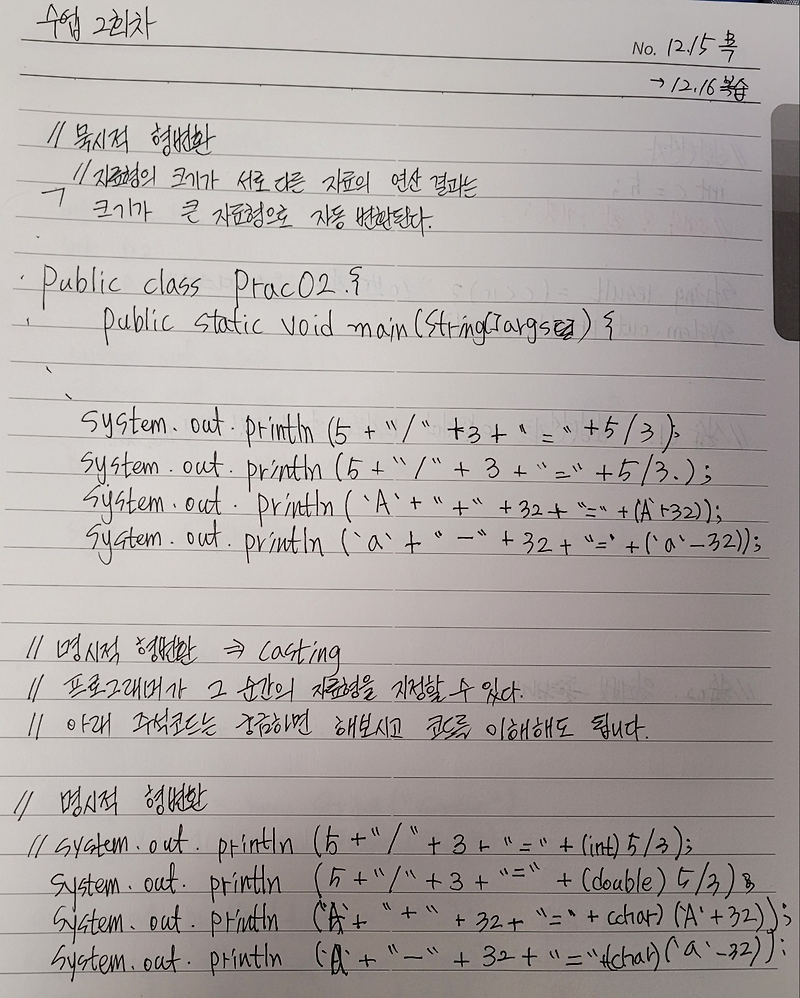 수업 2회차
No. 12.15 목
→ 12.16 복습
// 묵시적 형변환
// 자료형의 크기가 서로 다른 자료의 연산 결과는
크기가 큰 자료형으로 자동 변환된다.
public class Prac02 {
public static void main (String[] args) {
System. out. println (5 + "/" + 3 + "=" + 5/3);
System. out. println (5 + "/" + 3 + "=" + 5/3.);
System. out. println ('A' + "+" + 32 + "=" + ('A'+32));
System. out. println ('a' + "-" + 32 + "=" + ('a'-32));
// 명시적 형변환 ⇒ Casting
// 프로그래머가 그 순간의 자료형을 지정할 수 있다.
// 아래 주석코드는 궁금하면 해보시고 코드를 이해해도 됩니다.
// 명시적 형변환
// System. out. println (5 + "/" + 3 + "=" + (int) 5/3);
System. out. println (5 + "/" + 3 + "=" + (double) 5/3);
System. out. println ('A' + "+" + 32 + "=" + (char) ('A' + 32));
System. out. println ( + "-" + 32 + "=" + (char) ('a' - 32));